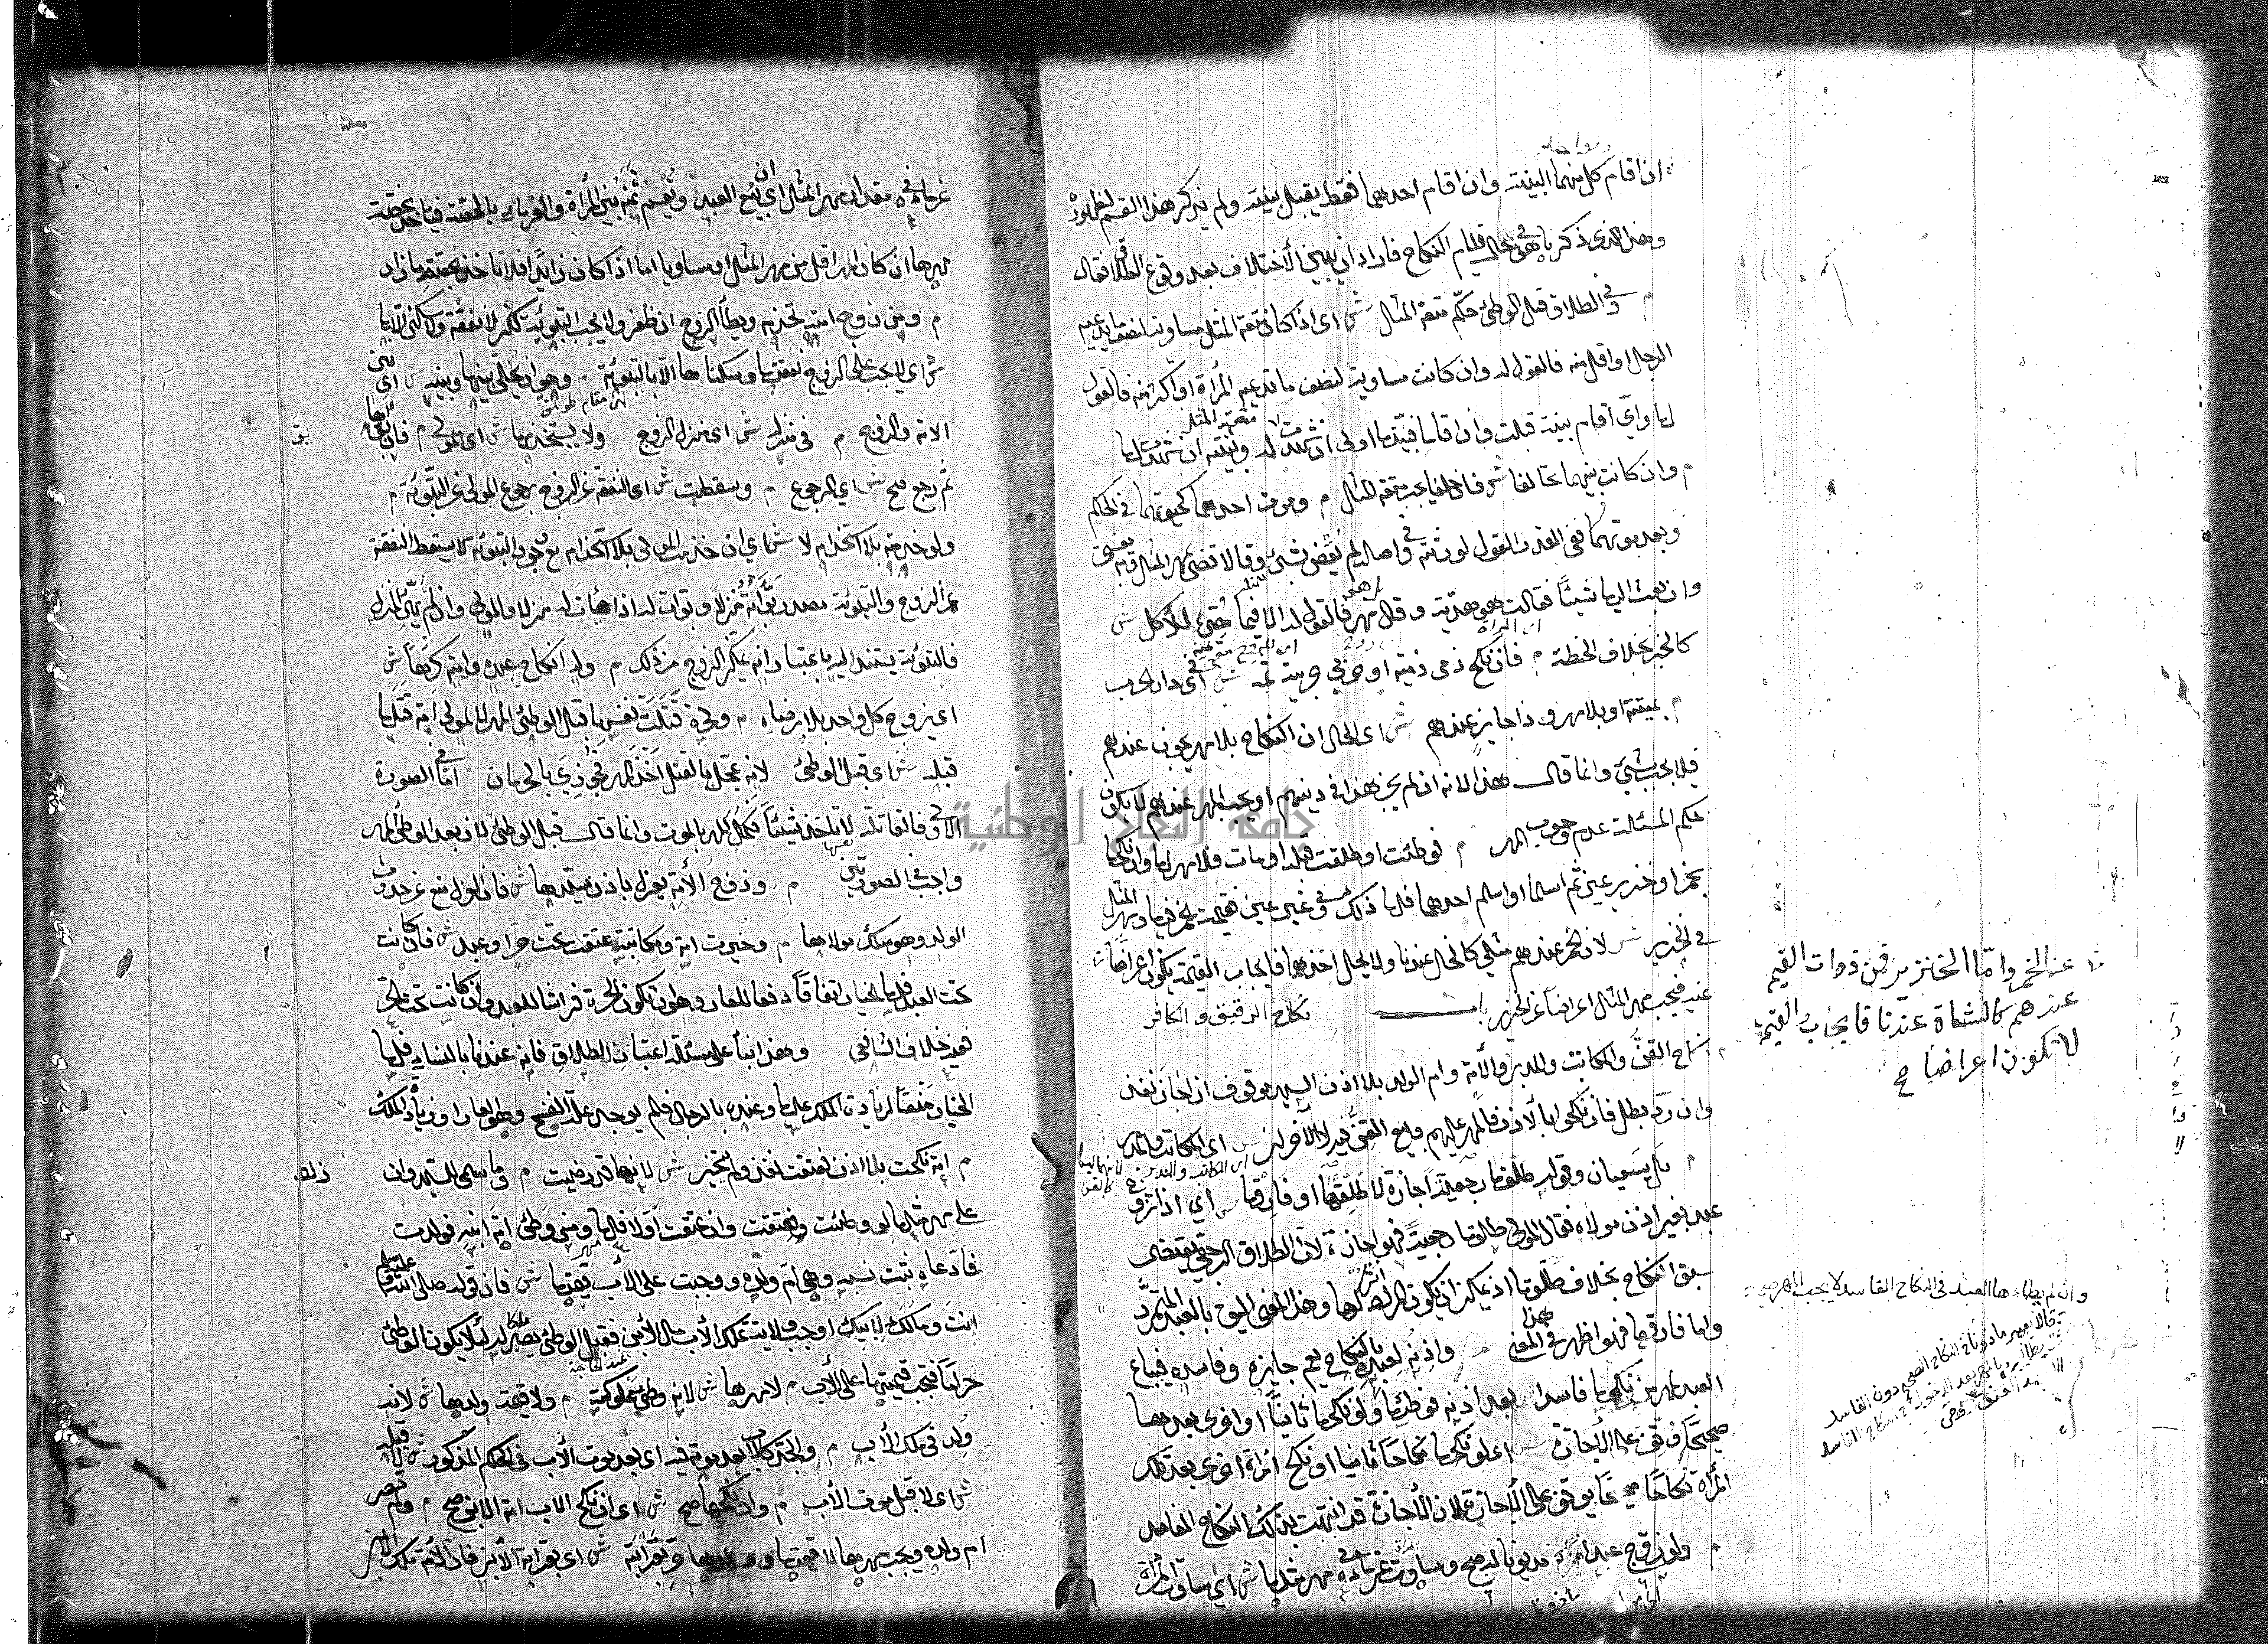 ان اقام كل منهما البينة وان اقام احدهما فقط يقبل بينته ولم يذكر هذا القسم لظهوره
وهذا الذي ذكر ما هو في حال قيام النكاح فاراد ان يبين الاختلاف بعد وقوع الطلاق فقال
م وفي الطلاق قبل الوطئ حكم متعة المثل ش اى اذا كان متعة المثل مساوية لنصف ما يدعيه
الرجل او اقل منه فالقول له وان كانت مساوية لنصف ما تدعيه المرأة او اكثر منه فالقول
لها واي اقام بينة قبلت وان اقاما فبينتها اولى ان شهدت له وبينته ان شهدت لها
متعة المثل
م وان كانت بينهما تحالفا ش فان حلفا يجب متعة المثل م وموت احدهما كحيوتهما في الحكم
وبعد موتهما ففي القدر القول لورثته وفي اصله لم يقض بشئ وقالا قضي بمهر المثل وبه يفتى
وان بعث اليها شيئا فقالت هو هدية وقال مهر فالقول له الا فيما هيئ للأكل ش
كالخبز بخلاف الحنطة م فان نكح ذمى ذمية او حربي حربية ثمه ش اى في دار الحرب
م بميتة او بلا مهر وذا جايز عندهم ش اى الحال ان النكاح بلا مهر يجوز عندهم
فلا يجب شئ وانما قال هذا لانه ان لم يجز هذا في دينهم او يجب المهر عندهم لا يكون
حكم المسئلة عدم وجوب المهر م فوطئت او طلقت قبله او مات فلا مهر لها وان نكحا
بخمر او خنزير عين ثم اسلما او اسلم احدهما فلها ذلك وفي غير عين قيمة الخمر فيها ومهر المثل
في الخنزير ش لان الخمر عندهم مثلي كالخل عندنا ولا يحل اخذها فايجاب القيمة يكون اعراضا
عنه فيجب مهر المثل اعراضا عن الخنزير باب نكاح الرقيق و الكافر
م نكاح القن والمكاتب والمدبر والأمة وام الولد بلا اذن السيد موقوف ان اجاز نفذ
وان رد بطل فان نكحوا بالاذن فالمهر عليهم وبيع القن فيه لا الآخران ش اى المكاتب والمدبر
م بل يسعيان وقوله طلقها رجعية اجازة لا طلقها او فارقها ش اي اذا تزوج
عبد بغير اذن مولاه فقال المولى طلقها رجعية فهو اجازة لان الطلاق الرجعي يقتضى
سبق النكاح بخلاف طلقها اذ يمكن ان يكون المراد تركها وهذا المعنى اليق بالعبد المتمرد
واما فارقها فهو اظهر في هذا المعنى م واذنه لعبده بالنكاح يعم جايزه وفاسده فيباع
العبد لمهر من نكحها فاسدا بعد اذنه فوطئها ولو نكحها ثانيا او اخرى بعدها
صحيحا وقف على الاجازة ش اى لو نكحها نكاحا ثانيا او نكح امراة اخرى بعد تلك
المرأة نكاحا صحيحا يوقف على الاجازة لان الاجازة قد انتهت بذلك النكاح الفاسد
م ولو زوج عبدا مديونا له صح وساوت غرماءه في مهر مثلها ش اى ساوت المرأة
عن الخمر واما الخنزير فمن ذوات القيم
عندهم كالشاة عندنا فايجاب القيمة
لا تكون اعراضا ح
وان لم يطاءها العبد في النكاح الفاسد لا يجب المهر
غرماءه في مقدار مهر المثل اي ان بيع العبد ويقسم ثمنه بين المرأة والغرماء بالحصة فيأخذ بحصة
مهرها ان كان المهر اقل من مهر المثل او مساويا اما اذا كان زايدا فلا تاخذ بحصة ما زاد
م ومن زوج امته تخدمه ويطأ الزوج ان ظفر ولا يجب التبوئة لكن لا نفقة ولا سكنى الا بها
ش اى لا يجب على الزوج نفقتها وسكناها الا بالتبوئة م وهو ان يخلي بينها وبينه ش اى بين
الامة والزوج م في منزله ش اى منزل الزوج ولا يستخدمها ش اى المولى م فان بوأها
ثم رجع صح ش اي الرجوع م وسقطت ش اى النفقة عن الزوج برجوع المولى عن التبوئة م
ولو خدمته بلا استخدام لا ش اي ان خدمت المولى بلا استخدام مع وجود التبوئة لا يسقط النفقة
عن الزوج والتبوئة مصدر بوأته منزلا وبوأت له اذا هيأت له منزلا والمولى وان لم يهيئ المنزل
فالتبوئة يستند اليه باعتبار انه يمكن الزوج من ذلك م وله انكاح عبده وامته كرها ش
اى يزوج كل واحد بلا رضاه م وحرة قتلت نفسها قبل الوطئ المهر لا لمولى امة قتلها
قبله ش اى قبل الوطئ لانه عجل بالقتل اخذ المهر فجوزي بالحرمان اما في الصورة
الاولى فالقاتلة لا تاخذ شيئا فكمل المهر بالموت وانما قال قبل الوطئ لان بعد الوطئ المهر
واجب في الصورتين م وزوج الأمة يعزل باذن سيدها ش فان العزل منع عن حدوث
الولد وهو ملك مولاها م وخيرت امة ومكاتبة عتقت تحت حر او عبد ش فان كانت
تحت العبد فلها الخيار اتفاقا دفعا للعار وهو ان تكون الحرة فراشا للعبد وان كانت تحت الحر
ففيه خلاف الشافعي وهذا بناء على مسئلة اعتبار الطلاق فانه عندنا بالنساء فلها
الخيار منعا لزيادة الملك عليها وعنده بالرجال فلم يوجد علة الفسخ وهو العار او زيادة الملك
م امة نكحت بلا اذن فعتقت نفذ ولم تخير ش لانها قد رضيت م وما سمى للسيد وان زاد
على مهر مثلها لو وطئت وعتقت وان عتقت اولا فلها ومن وطئ امة ابنه فولدت
فادعاه ثبت نسبه وهى ام ولده ووجبت على الأب قيمتها ش فان قوله صلى الله عليه وسلم
انت ومالك لابيك اوجب ولاية تملك الأب مال الأبن فقبيل الوطئ يصير ملكا له لئلا يكون الوطئ
حراما فتجب قيمتها على الأب م لا مهرها ش لانه وطئ مملوكته م ولا قيمة ولدها ش لانه
ولد في ملك الأب م والجد كالاب بعد موته فيه اى بعد موت الأب في الحكم المذكور لا قبله
ش اى لا قبل موت الأب م وان نكحها صح ش اى ان نكح الاب امة الابن صح م ولم تصر
ام ولده ويجب مهرها لا قيمتها وولدها حر بقرابته ش اى بقرابة الأبن فان الأمة ملك الأبن